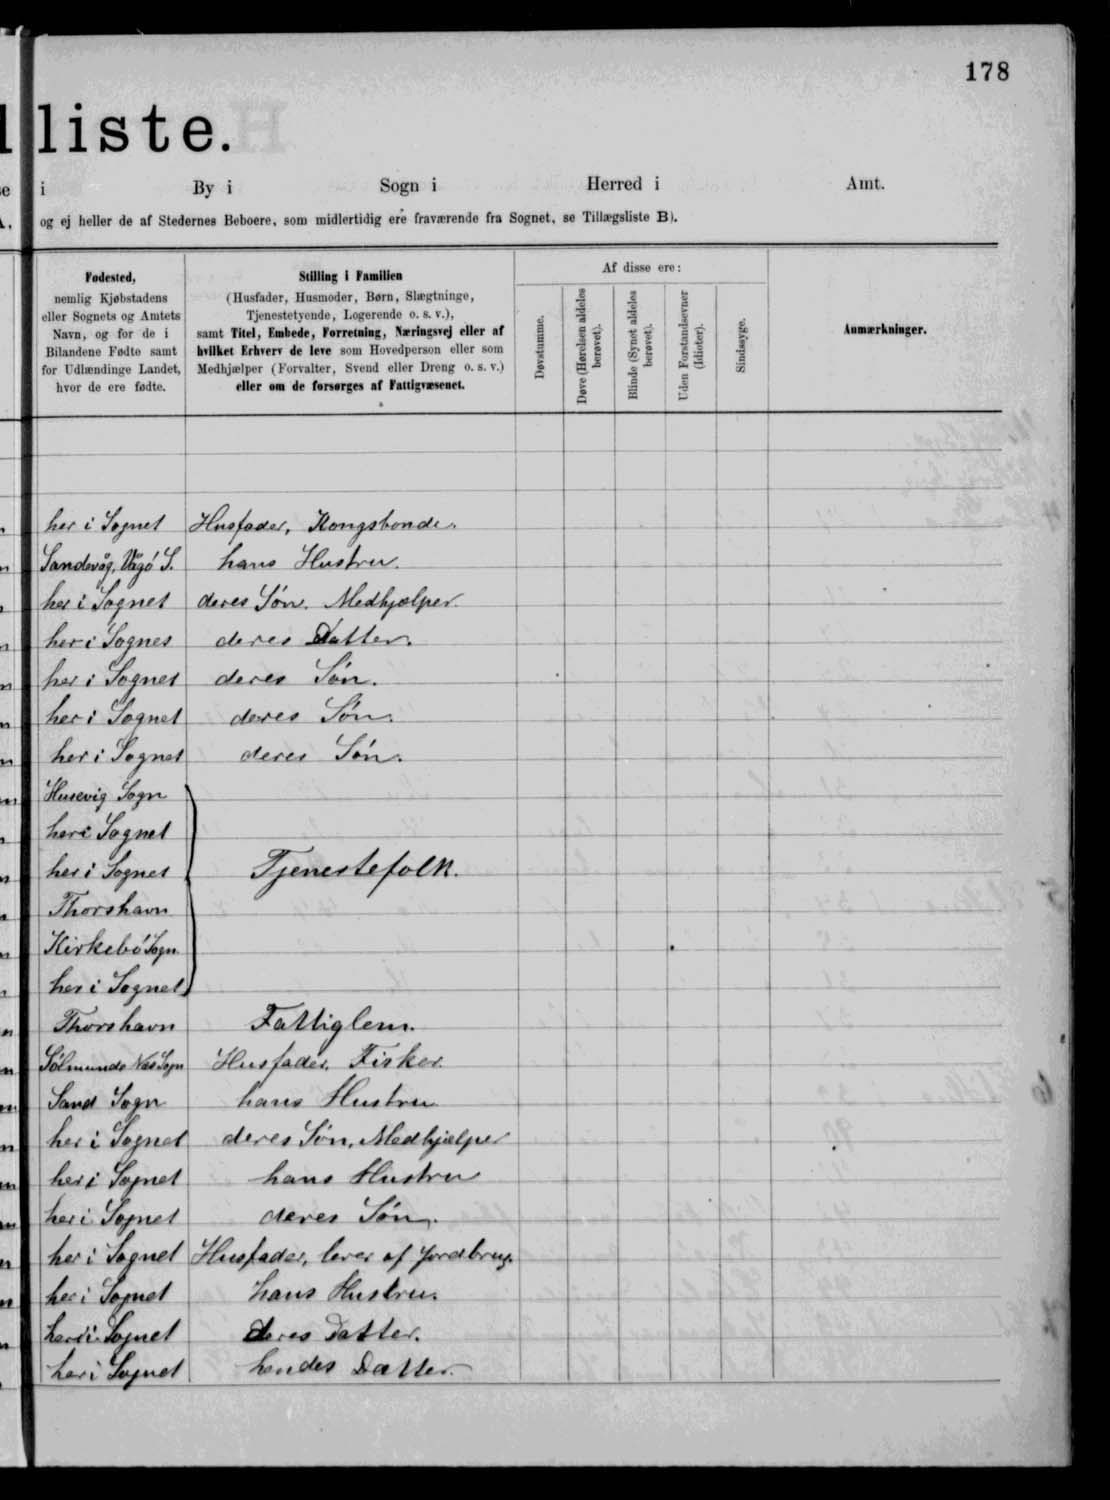 178
liste.
i By i Sogn i Herred i Amt.
og ej heller de af Stedernes Beboere, som midlertidig ere fraværende fra Sognet, se Tillægsliste B).
Fødested,
nemlig Kjøbstadens
eller Sognets og Amtets
Navn, og for de i
Bilandene Fødte samt
for Udlændinge Landet,
hvor de ere fødte.
Stilling i Familien
(Husfader, Husmoder, Børn, Slægtninge,
Tjenestetyende, Logerende o. s. v.),
samt Titel, Embede, Forretning, Næringsvej eller af
hvilket Erhverv de leve som Hovedperson eller som
Medhjælper (Forvalter, Svend eller Dreng o. s. v.)
eller om de forsørges af Fattigvæsenet.
Af disse ere:
Døvstumme.
Døve (Hørelsen aldeles
berøvet).
Blinde (Synet aldeles
berøvet).
Uden Forstandsevner
(Idioter).
Sindssyge.
Anmærkninger.
her i Sognet Husfader, Kongsbonde.
Sandevåg, Vågö S. hans Hustru.
her i Sognet deres Sön. Medhjælper.
her i Sognes deres Datter.
her i Sognet deres Sön.
her i Sognet deres Sön.
her i Sognet deres Sön.
Husevig Sogn
her i Sognet
her i Sognet Tjenestefolk.
Thorshavn
Kirkebö Sogn.
her i Sognet
Thorshavn Fattiglem.
Sölmunde Næs Sogn Husfader, Fisker.
Sand Sogn hans Hustru
her i Sognet deres Sön, Medhjælper
her i Sognet hans Hustru
her i Sognet deres Sön.
her i Sognet Husfader, lever af Jordbrug.
her i Sognet hans Hustru.
her i Sognet deres Datter.
her i Sognet hendes Datter.